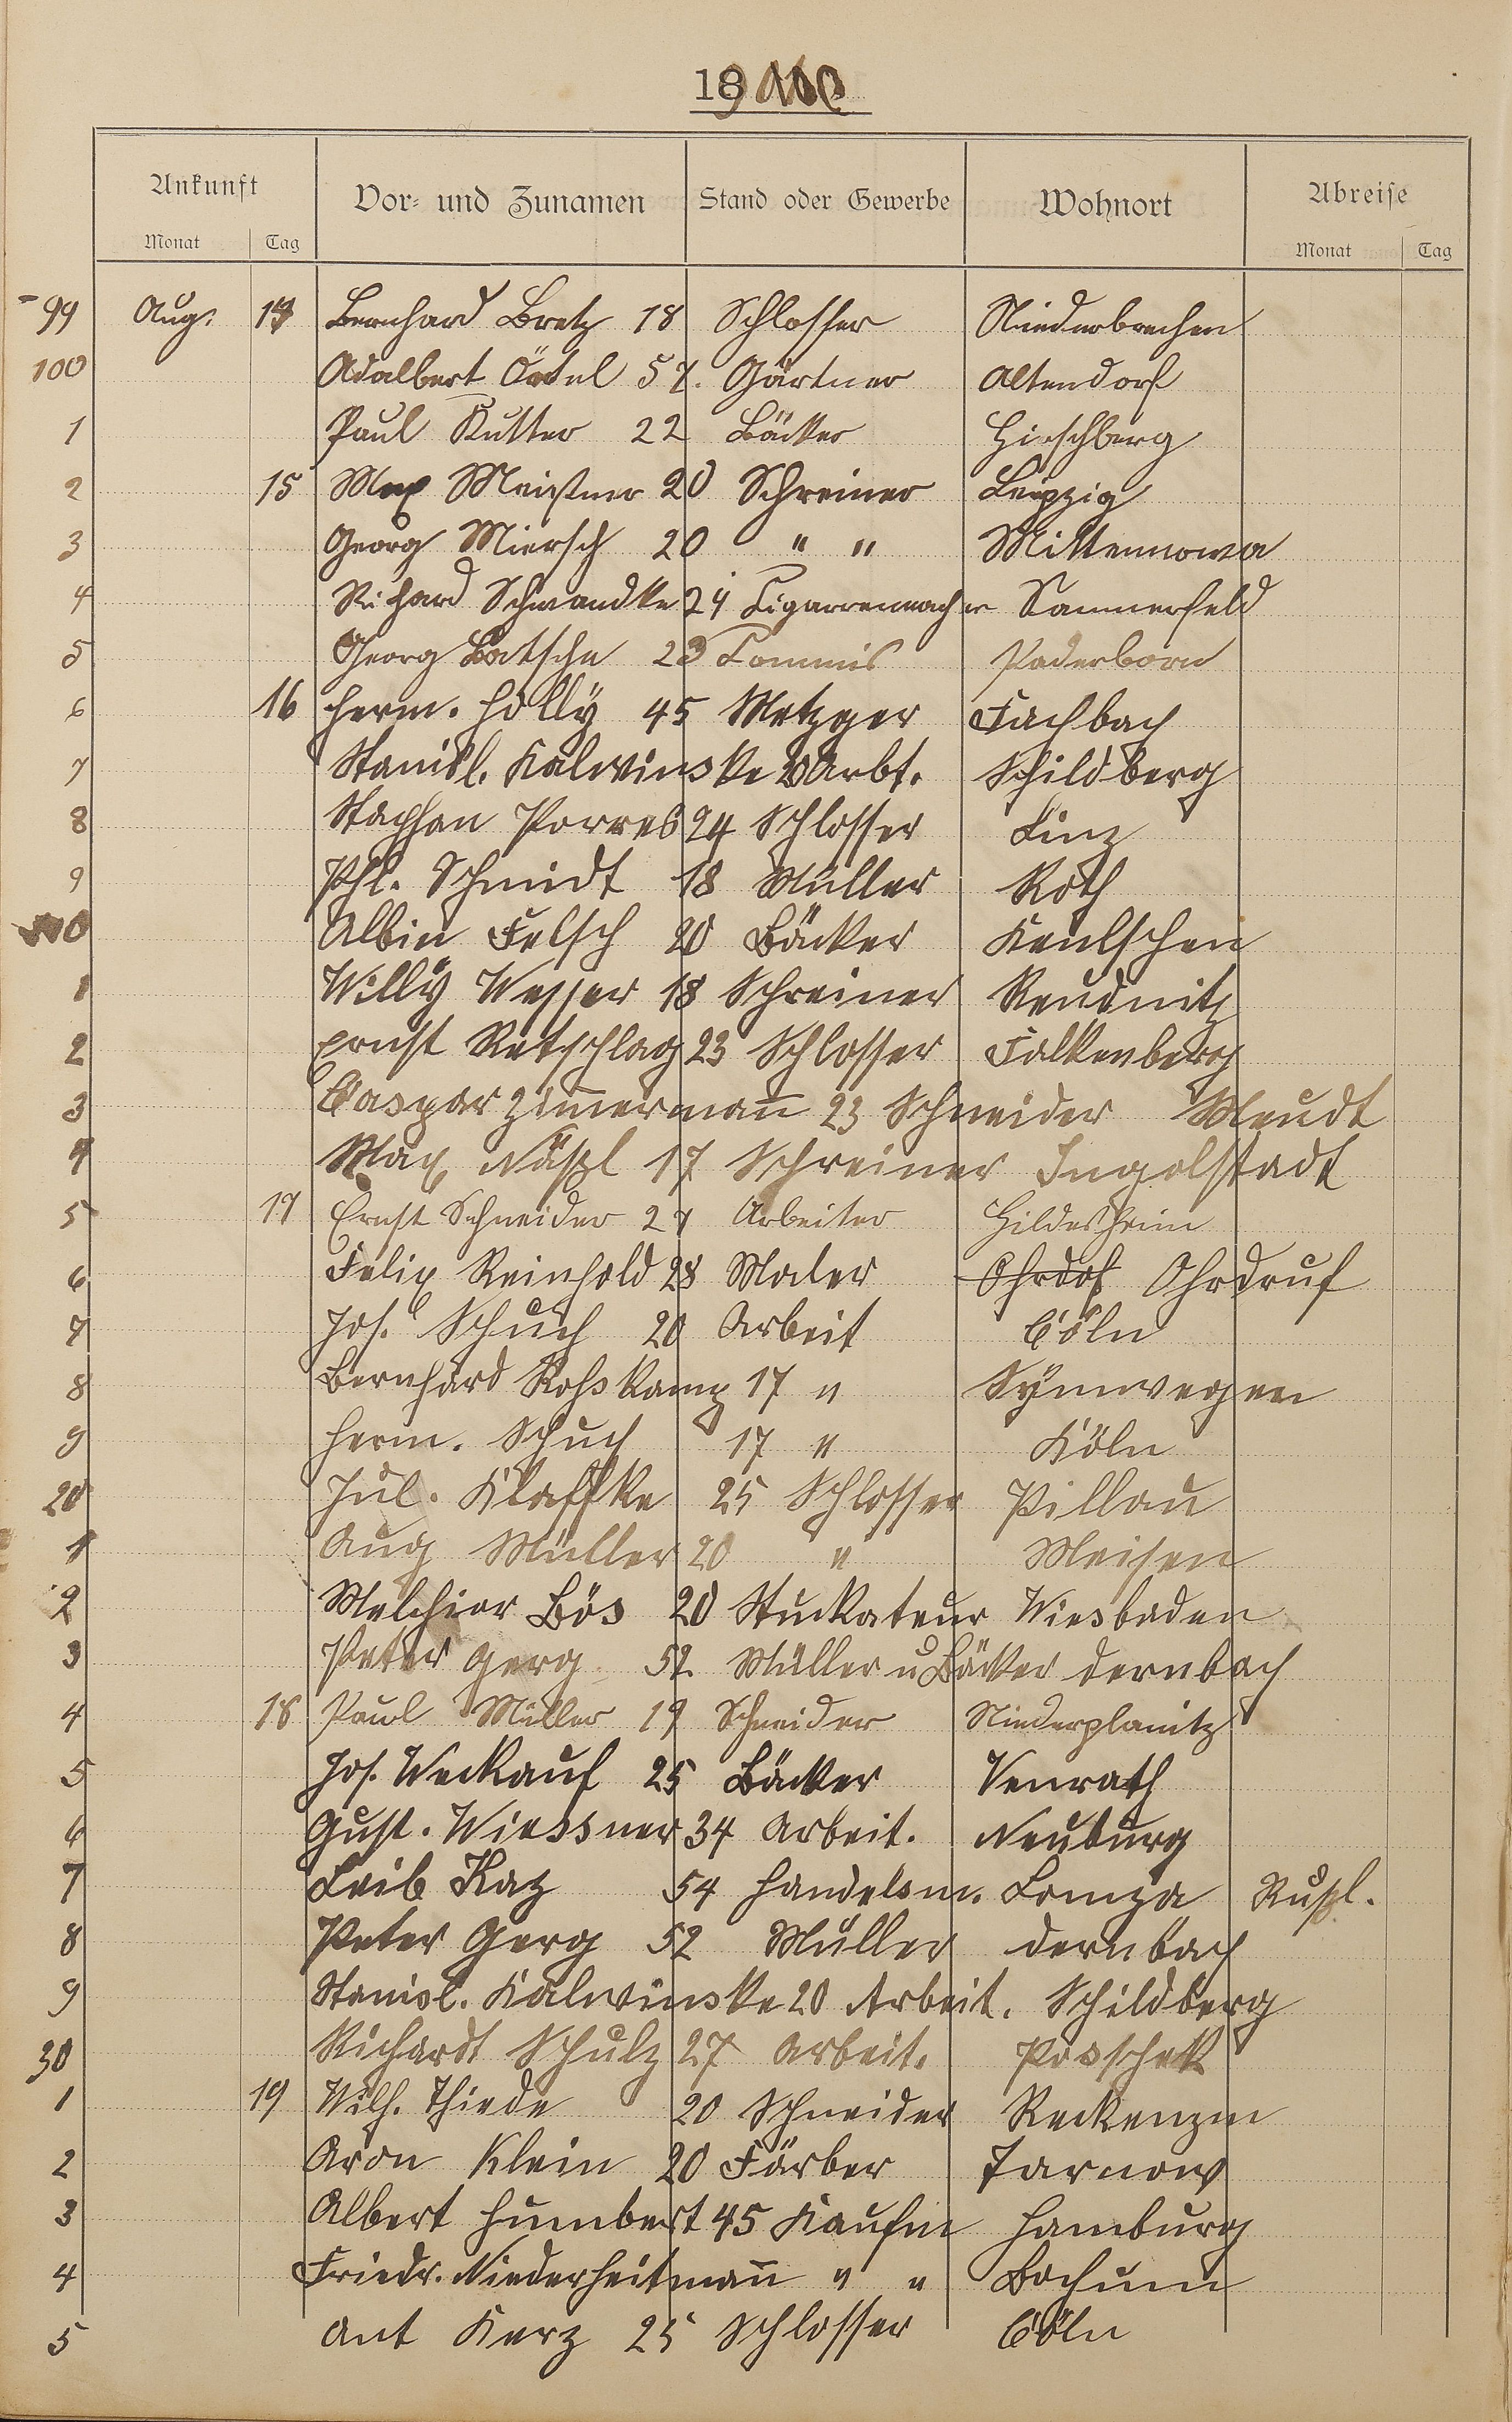 1900
Ankunft Vor- und Zunamen Stand oder Gewerbe Wohnort Abreise
Monat Tag Monat Tag
99 Aug. Bernhard Bretz 18 Schlosser Niederbrechen
100 Adalbert Örtel 57. Gärtner Altendorf
1 Paul Kutter 22 Bäcker Hirschberg
2 15 Max Meißner 20 Schreiner Leipzig
3 Georg Miersch 20 " " Mittennowa
4 Richard Schwandke 24 Cigarrenmacher Sammerfeld
5 Georg Batsche 23 Commis Paderborn
6 16 Herm. Holly 45 Metzger Fachbach
7 Stanisl. Kalwinske Arbt. Schildberg
8 Stephan Porres 24 Schlosser Linz
9 Phl. Schmidt 18 Müller Roth
10 Albin Felsch 20 Bäcker Keulschen
1 Willy Wesser 18 Schreiner Reudnitz
2 Ernst Retschlag 23 Schlosser Falkenberg
3 Caspar Zimmermann 23 Schneider Meudt
4 Max Näßl 17 Schreiner Ingolstadt
5 17 Ernst Schneider 27 Arbeiter Hildesheim
6 Felix Reinhold 28 Maler Ohrdof Ohrdruf
7 Jos. Schuch 20 Arbeit Cöln
8 Bernhard Rohskamp 17 " Nymwegen
9 Herm. Schuch 17 " Köln
20 Jul. Klaffke 25 Schlosser Pillau
1 Aug Müller 20 " Meisen
2 Melchior Bös 20 Stuckateur Wiesbaden
3 Peter Gerg 52 Müller u Bäcker Dernbach
4 18 Paul Müller 19 Schneider Niederplanitz
5 Jos. Weckauf 25 Bäcker Venrath
6 Gust. Wiessner 34 Arbeit. Neuburg
7 Leib Kaz 54 Handelsm. Lomza Rußl.
8 Peter Gerg 52 Müller Dernbach
9 Stanisl. Kalwinske 20 Arbeit. Schildberg
30 Richardt Schulz 27 Arbeit. Posschek
1 19 Wilh. Thiede 20 Schneider Reckenzin
2 Aron Klein 20 Färber Tarnow
3 Albert Humbert 45 Kaufm Hamburg
4 Friedr. Niederheitmann " " Bochum
5 Ant Kerz 25 Schlosser Cöln